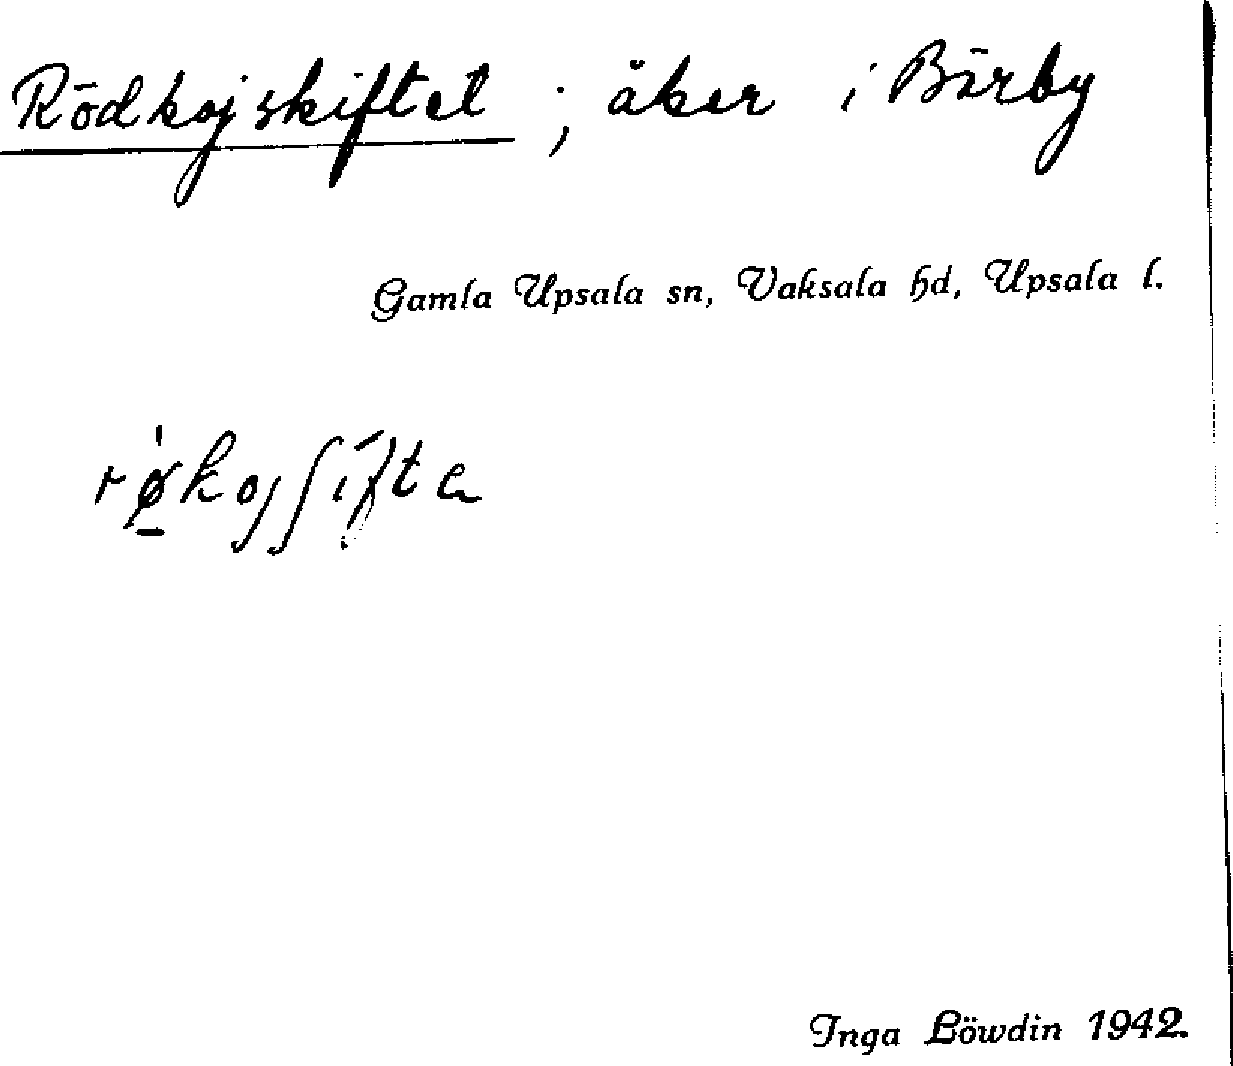 Rödkojskiftet ; åker i Bärby
Gamla Upsala sn, Vaksala hd, Upsala l.
Inga Löwdin 1942.